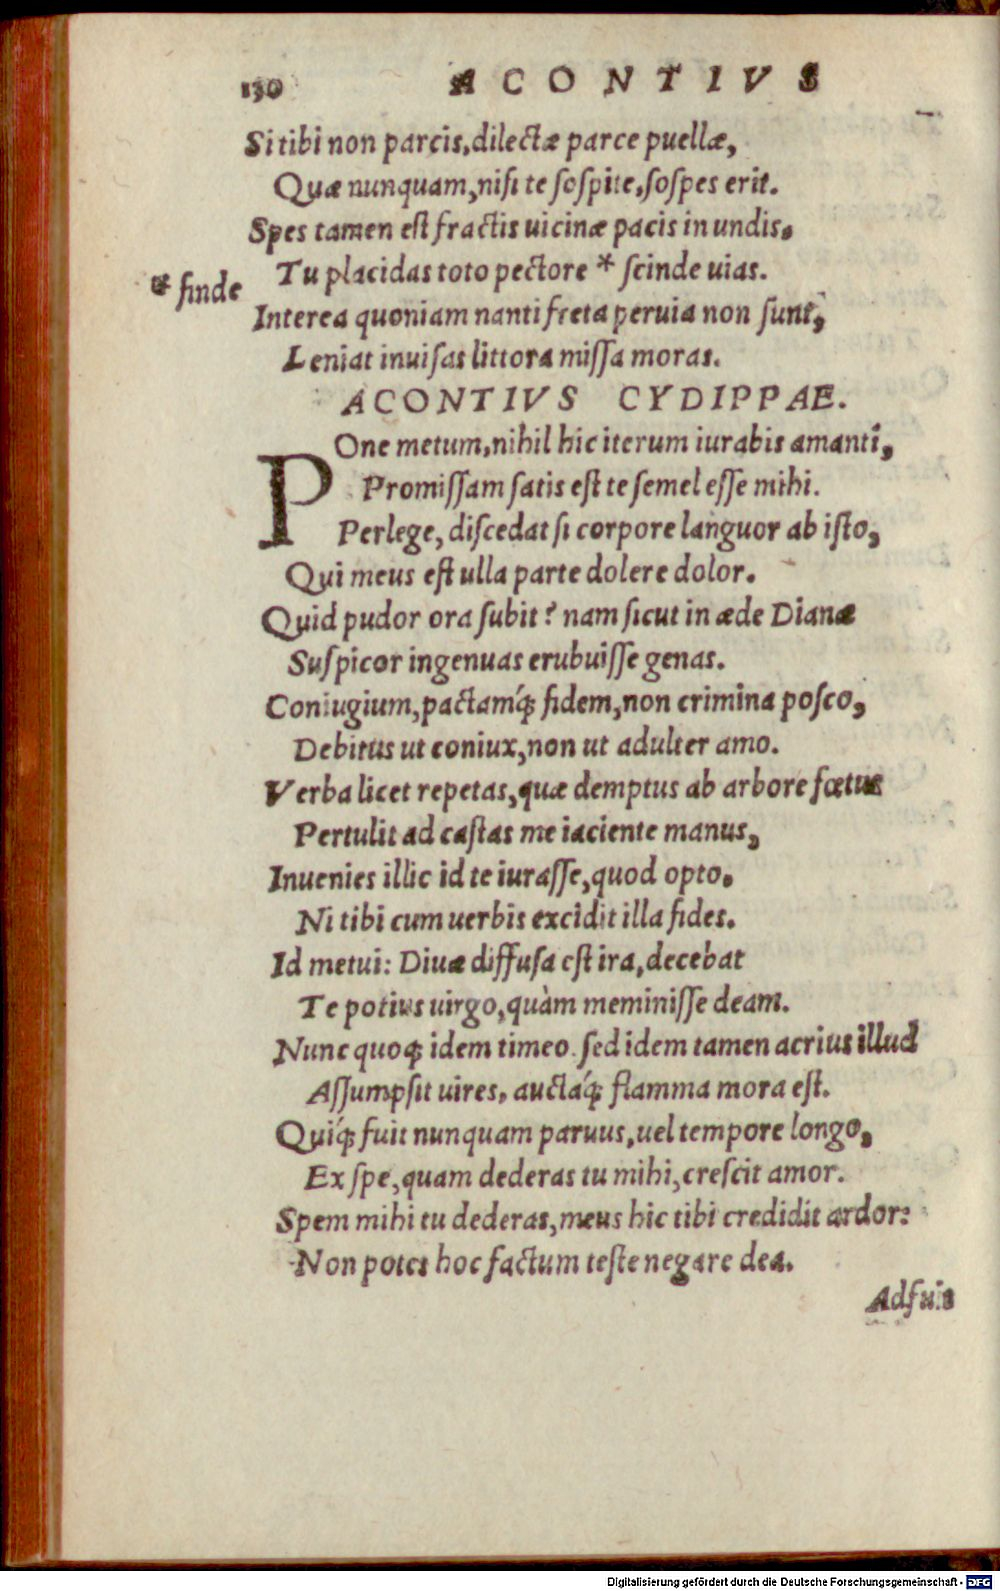 130 ACONTIVS
Si tibi non parcis, dilectæ parce puellæ,
Quæ nunquam, nisi te sospite, sospes erit.
Spes tamen est fractis uicinæ pacis in undis.
Tu placidas toto pectore * scinde uias.
* finde
Interea quoniam nanti freta peruia non sunt,
Leniat inuisas littora missa moras.
ACONTIVS CYDIPPAE.
POne metum, nihil hic iterum iurabis amanti,
Promissam satis est te semel esse mihi.
Perlege, discedat si corpore languor ab isto,
Qui meus est ulla parte dolere dolor.
Quid pudor ora subit? nam sicut in æde Dianæ
Suspicor ingenuas erubuisse genas.
Coniugium, pactamq́; fidem, non crimina posco,
Debitus ut coniux, non ut adulter amo.
Verba licet repetas, quæ demptus ab arbore fœtus
Pertulit ad castas me iaciente manus,
Inuenies illic id te iurasse, quod opto.
Ni tibi cum uerbis excidit illa fides.
Id metui: Diuæ diffusa est ira, decebat
Te potius uirgo, quàm meminisse deam.
Nunc quoq; idem timeo. sed idem tamen acrius illud
Assumpsit uires, auctaq́; flamma mora est.
Quiq́; fuit nunquam paruus, uel tempore longo,
Ex spe, quam dederas tu mihi, crescit amor.
Spem mihi tu dederas, meus hic tibi credidit ardor:
Non potes hoc factum teste negare dea.
Adfuis
Digitalisierung gefördert durch die Deutsche Forschungsgemeinschaft - DFG